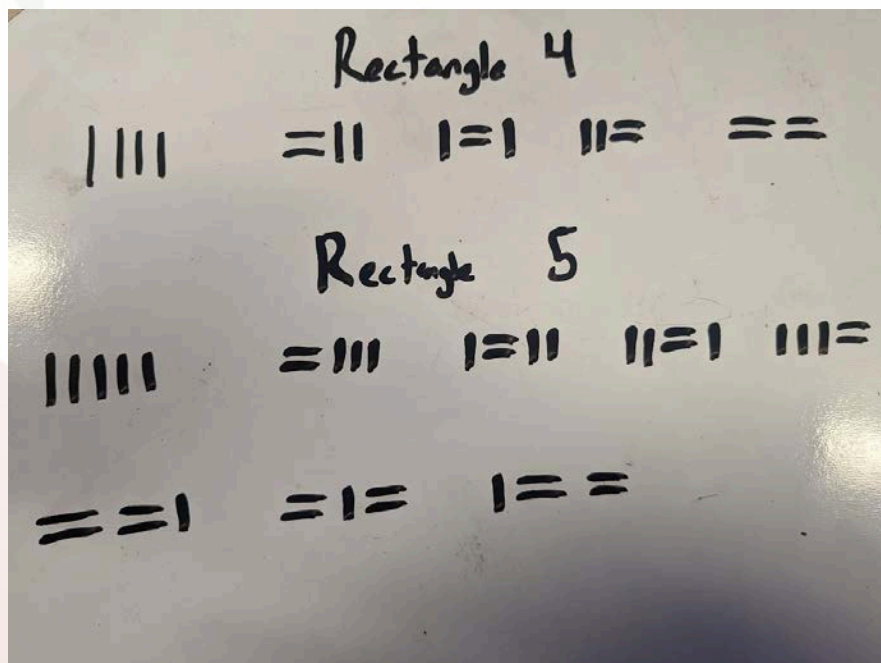 Rectangle 4
|||| =|| |=| ||= ==
Rectangle 5
||||| =||| |=|| ||=| |||=
==| =|= |==